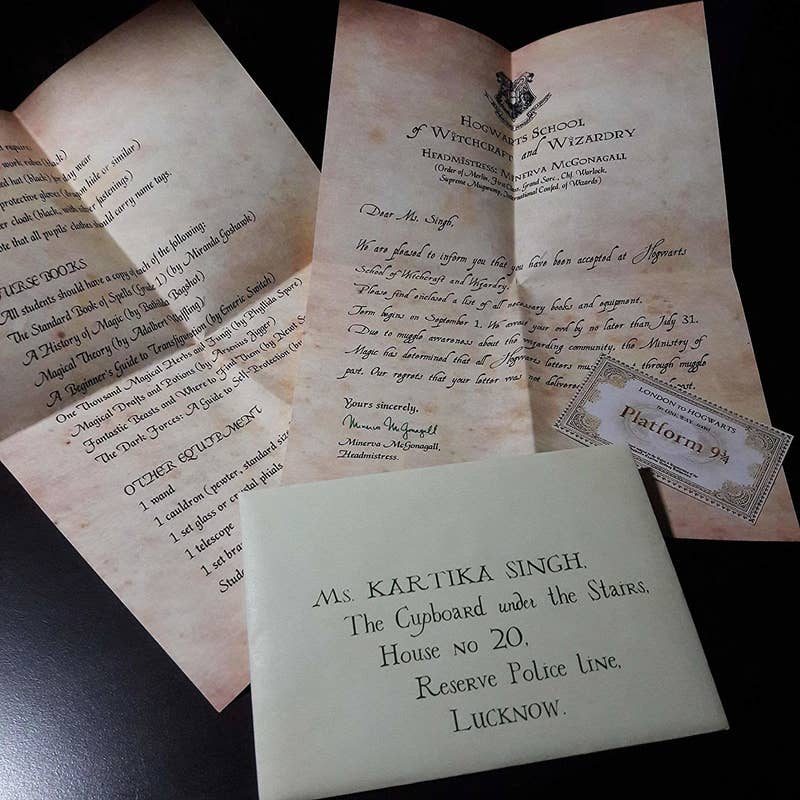 t repairs.
work robes (black)
ted hat (black) for day wear
protective gloves (dragon hide or similar)
er cloak (black, with silver fastenings)
te that all pupils' clothes should carry name tags.
URSE BOOKS
All students should have a copy of each of the following:
The Standard Book of Spells (Grade 1) (by Miranda Goshawk)
A History of Magic (by Bathilda Bagshot)
Magical Theory (by Adalbert Waffling)
A Beginner's Guide to Transfiguration (by Emeric Switch)
One Thousand Magical Herbs and Fungi (by Phyllida Spore)
Magical Drafts and Potions (by Arsenius Jigger)
Fantastic Beasts and Where to Find Them (by Newt
The Dark Forces: A Guide to Self-Protection (by
OTHER EQUIPMENT
1 wand
1 cauldron (pewter, standard size
1 set glass or crystal phials
1 telescope
1 set bra
Stude
HOGWARTS SCHOOL
of WITCHCRAFT and WIZARDRY
HEADMISTRESS: MINERVA McGONAGALL
(Order of Merlin, First Class, Grand Sorc., Chf. Warlock,
Supreme Mugwump, International Confed. of Wizards)
Dear Ms. Singh,
We are pleased to inform you that you have been accepted at Hogwarts
School of Witchcraft and Wizardry.
Please find enclosed a list of all necessary books and equipment.
Term begins on September 1. We await your owl by no later than July 31.
Due to muggle awareness about the wizarding community, the Ministry of
Magic has determined that all Hogwarts letters must through muggle
post. Our regrets that your letter was not delivered
Yours sincerely,
Minerva McGonagall
Minerva McGonagall,
Headmistress.
LONDON TO HOGWARTS
for ONE WAY travel
Platform 9¾
Ms. KARTIKA SINGH,
The Cupboard under the Stairs,
House no 20,
Reserve Police line,
Lucknow.